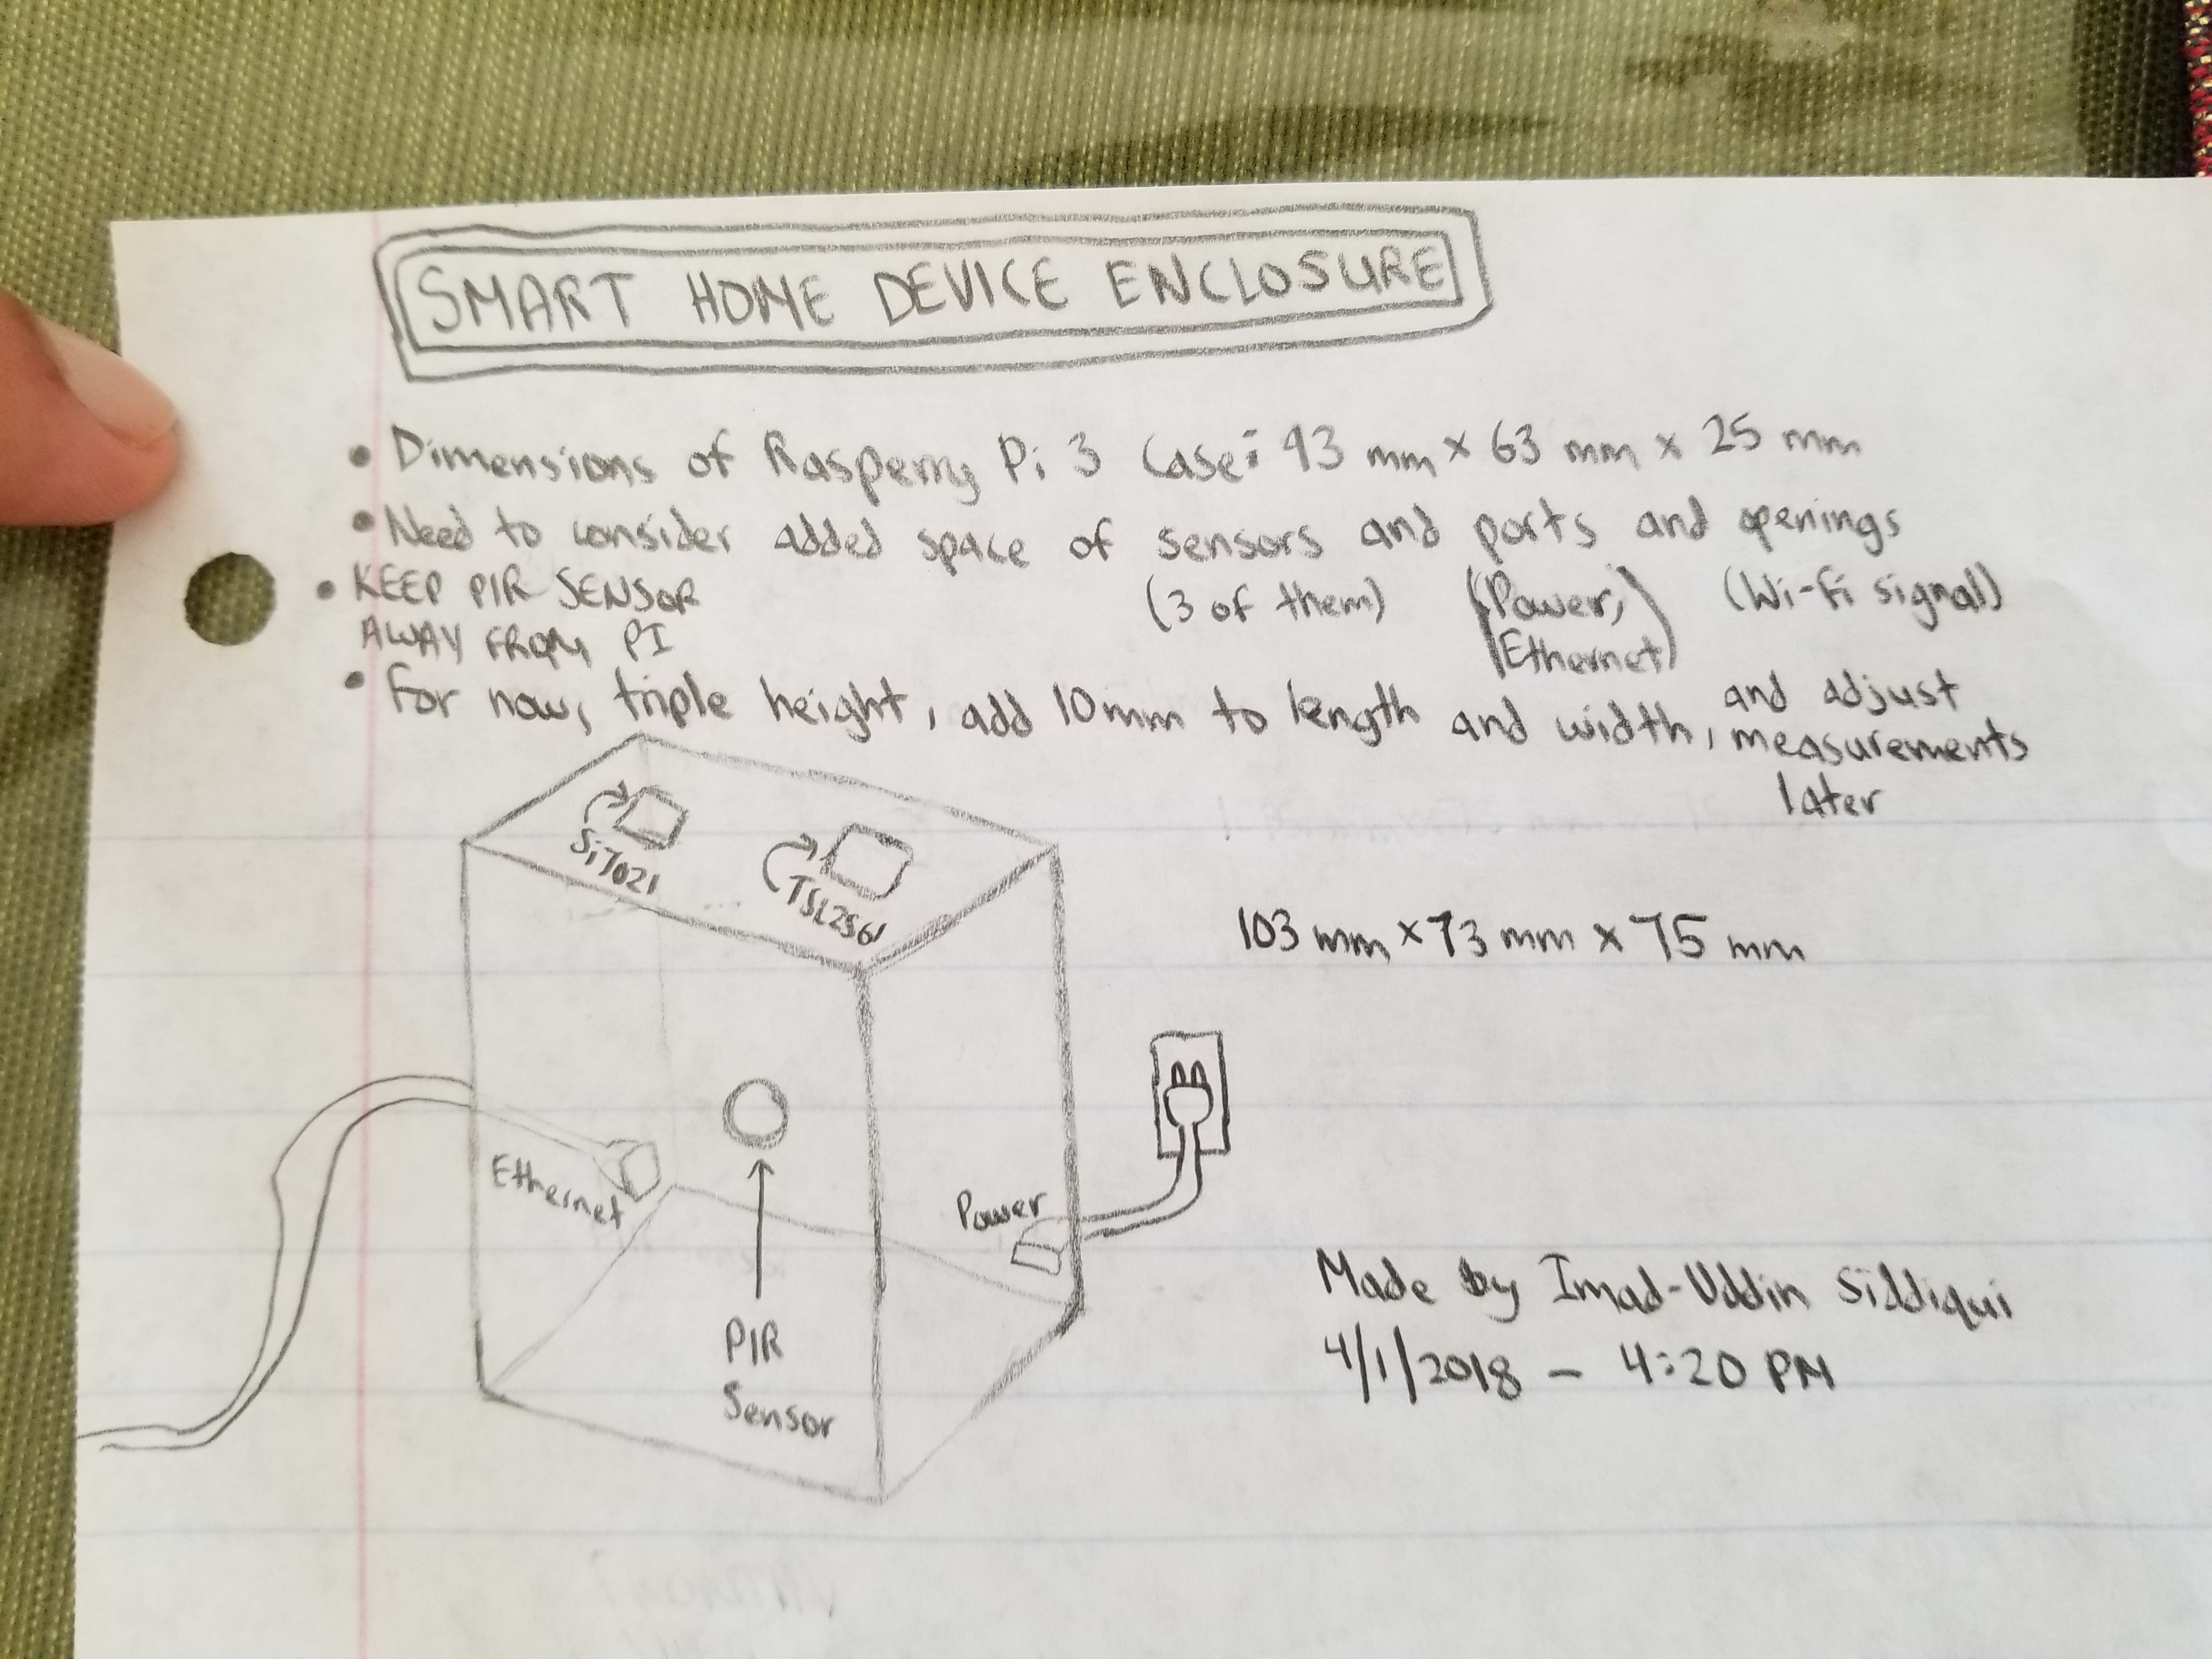 SMART HOME DEVICE ENCLOSURE
• Dimensions of Raspberry Pi 3 Case: 93 mm x 63 mm x 25 mm
• Need to consider added space of sensors and ports and openings
(3 of them) (Power, Ethernet) (Wi-fi signal)
• KEEP PIR SENSOR
AWAY FROM PI
• For now, triple height, add 10mm to length and width, and adjust
measurements
later
Si7021
TSL2561
103 mm x 73 mm x 75 mm
Ethernet
Power
PIR
Sensor
Made by Imad-Uddin Siddiqui
4/1/2018 - 4:20 PM